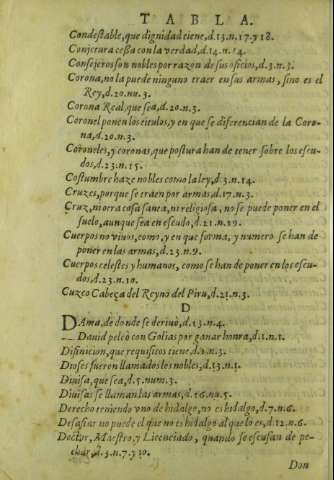 TABLA.
Condestable, que dignidad tiene, d.13.n.17.y 18.
Conjectura cessa con la verdad, d.14.n.14.
Consejeros son nobles por razon de sus oficios, d.3.n.3.
Corona, no la puede ninguno traer en sus armas, sino es el
Rey, d.20.nu.3.
Corona Real, que sea, d.20.n.3.
Coronel ponen los titulos, y en que se diferencian de la Coro-
na, d.20.n.3.
Coroneles, y coronas, que postura han de tener sobre los escu-
dos, d.23.n.15.
Costumbre haze nobles como la ley, d.3.n.14.
Cruzes, porque se traen por armas, d.17.n.3.
Cruz, ni otra cosa santa, ni religiosa, no se puede poner en el
suelo, aunque sea en escudo, d.21.n.29.
Cuerpos no vivos, como, y en que forma, y numero se han de
poner en las armas, d.23.n.9.
Cuerpos celestes y humanos, como se han de poner en los escu-
dos, d.23.n.10.
Cuzco Cabeça del Reyno del Piru, d.21.n.3.
D
DAma, de donde se derivò, d.13.n.4.
David peleò con Golias por ganar honra, d.1.n.1.
Difinicion, que requisitos tiene, d.2.n.3.
Dioses fueron llamados los nobles, d.13.n.1.
Divisa, que sea, d.5.num.3.
Divisas se llaman las armas, d.16.nu.5.
Derecho teniendo uno de hidalgo, no es hidalgo, d.7.n.6.
Desafiar no puede el que no es hidalgo al que lo es, d.12.n.6.
Doctor, Maestro, y Licenciado, quando se escusan de pe-
char, d.3.n.7.y 10.
Don